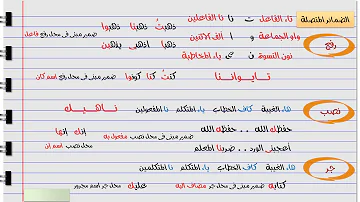 الضمائر المتصلة
تاء الفاعل ت نا نا الفاعلين ذهبتُ ذهبنا ذهبوا
رفع
واو الجماعة و ا ألف الاثنين ضمير مبني في محل رفع فاعل
نون النسوة ن ي ياء المخاطبة ذهبا اذهبي يذهبن
تـــايـــوانـــنا كنتُ كنا كونوا ضمير مبني في محل رفع اسم كان
نصب
هاء الغيبة كاف الخطاب ياء المتكلم نا المفعولين نـــاهـــيـــك
حفظك الله .. حفظه الله ضمير مبني في محل نصب مفعول به إنك إنها
أعجبني الورد .. ضربنا المعلم محل نصب اسم إن
جر
هاء الغيبة كاف الخطاب ياء المتكلم نا المتكلمين
كتابه ضمير مبني في محل جر مضاف اليه عليك محل جر اسم مجرور